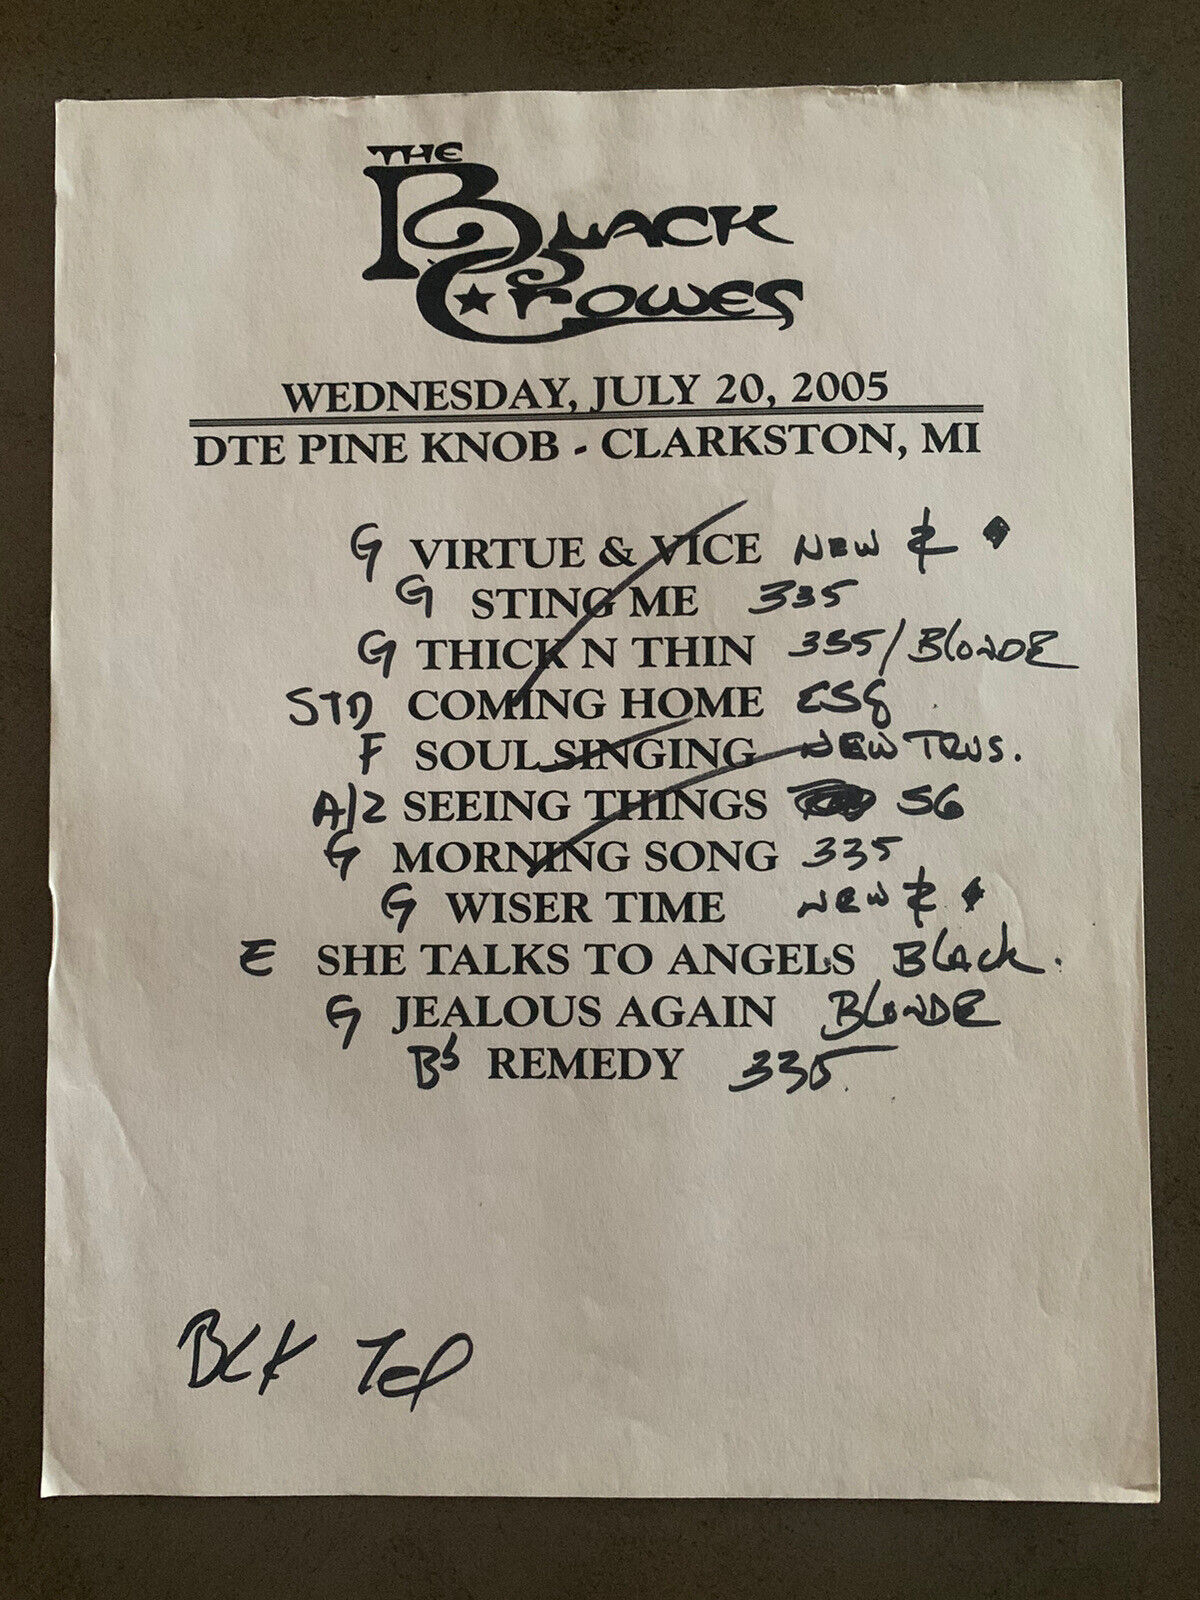 THE
BLACK
CROWES
WEDNESDAY, JULY 20, 2005
DTE PINE KNOB - CLARKSTON, MI
G VIRTUE & VICE NEW
G STING ME 335
G THICK N THIN 335/BLONDE
STD COMING HOME ESG
F SOUL SINGING NEW TRUS.
A/2 SEEING THINGS SG
G MORNING SONG 335
G WISER TIME NEW
E SHE TALKS TO ANGELS BLACK.
G JEALOUS AGAIN BLONDE
REMEDY 335
BLK Tel